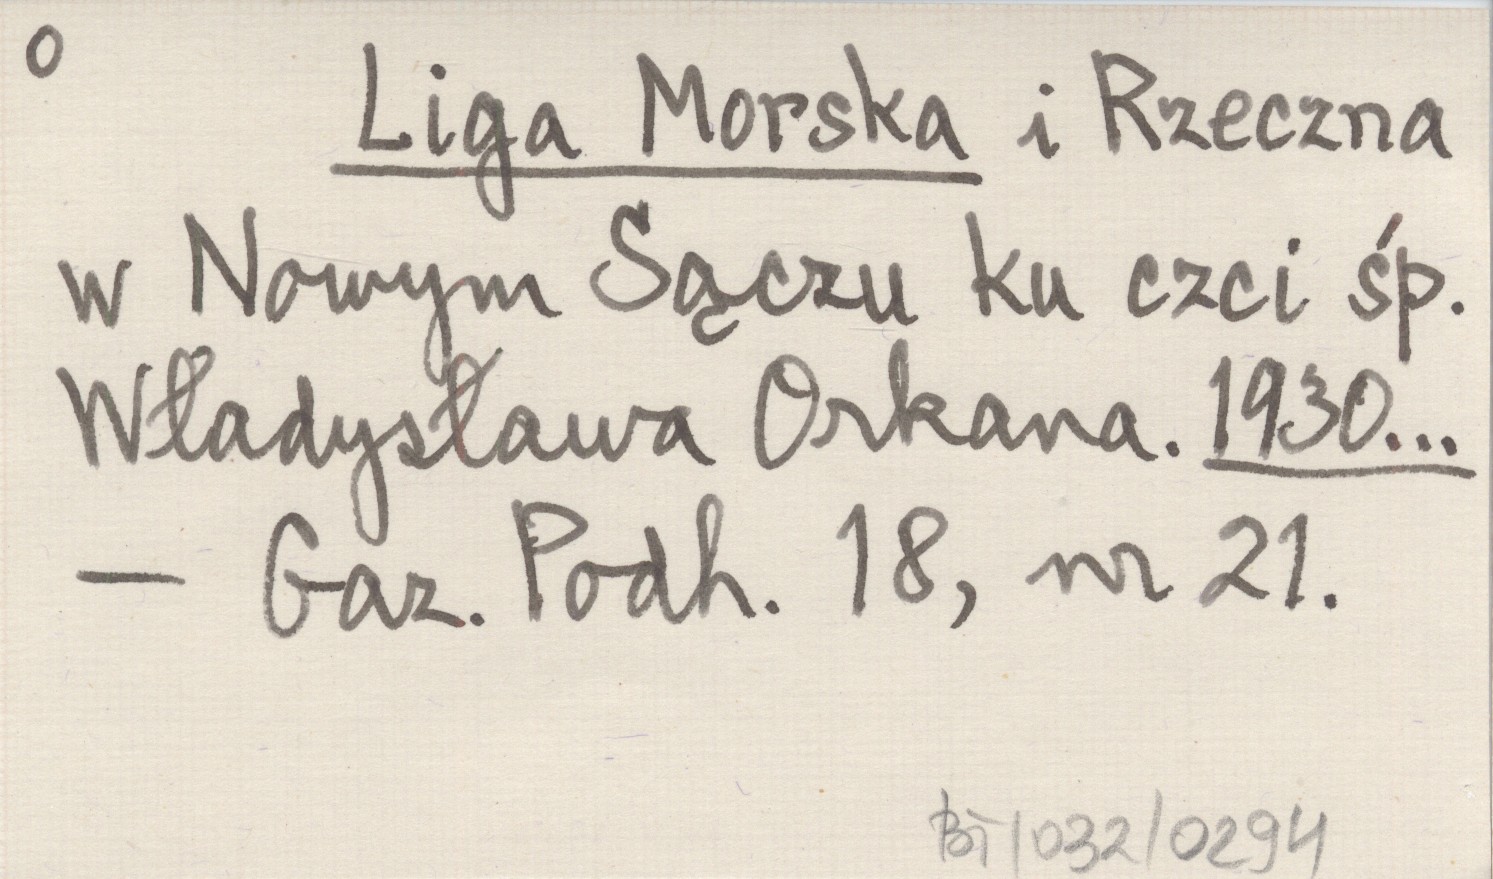 o
Liga Morska i Rzeczna
w Nowym Sączu ku czci śp.
Władysława Orkana. 1930...
— Gaz. Podh. 18, nr 21.
BT/032/0294